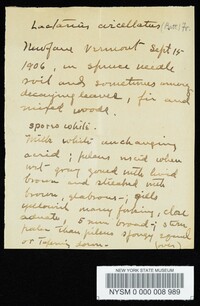 Lactarius circellatus (Batt) Fr.
Newfane Vermont Sept 15
1906, in spruce needle
soil and sometimes among
decaying leaves, fir and
mixed woods.
spore white.
Milk white unchanging
acrid; pileus viscid when
wet gray zoned with lurid
brown and streaked with
brown, glabrous; gills
yellowish many forking, close
adnate, 5 mm broad; stem
paler than pileus spongy equal
or tapering down. (over)
NEW YORK STATE MUSEUM
NYSM 0 000 008 989